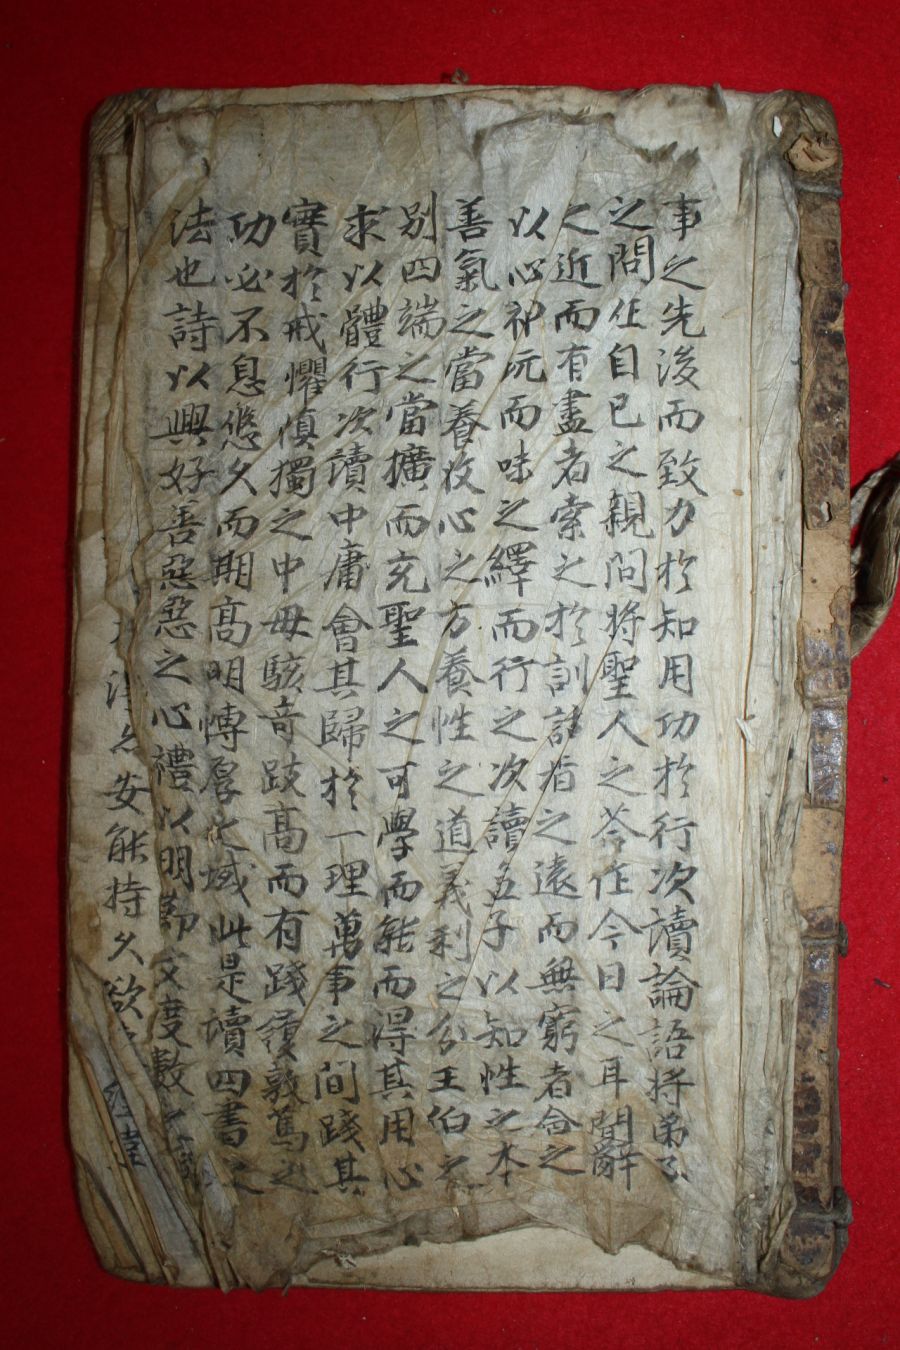 事之先後而致力於知用功於行次讀論語將弟子
之問任自己之親問將聖人之答作今日之耳聞辭
之近而有盡者索之於訓詁旨之遠而無窮者會之
以心神玩而味之繹而行之次讀孟子以知性之本
善氣之當養收心之方養性之道義利之分王伯之
別四端之當擴而充聖人之可學而能而得其用心
求以體行次讀中庸會其歸於一理萬事之間踐其
實於戒懼慎獨之中毋駭奇跂高而有踐敦篤之
功必不息悠久而期高明慱厚之域此是讀四書之
法也詩以興好善惡惡之心禮以明節文度數
安能持久欲